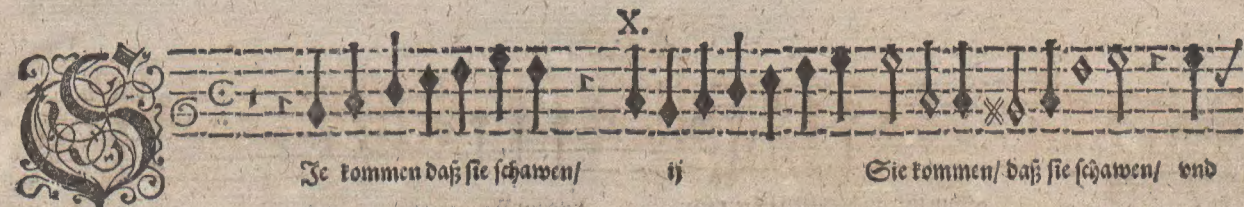 X.
SIe kommen daß sie schawen/ ij Sie kommen/ daß sie schawen/ vnd